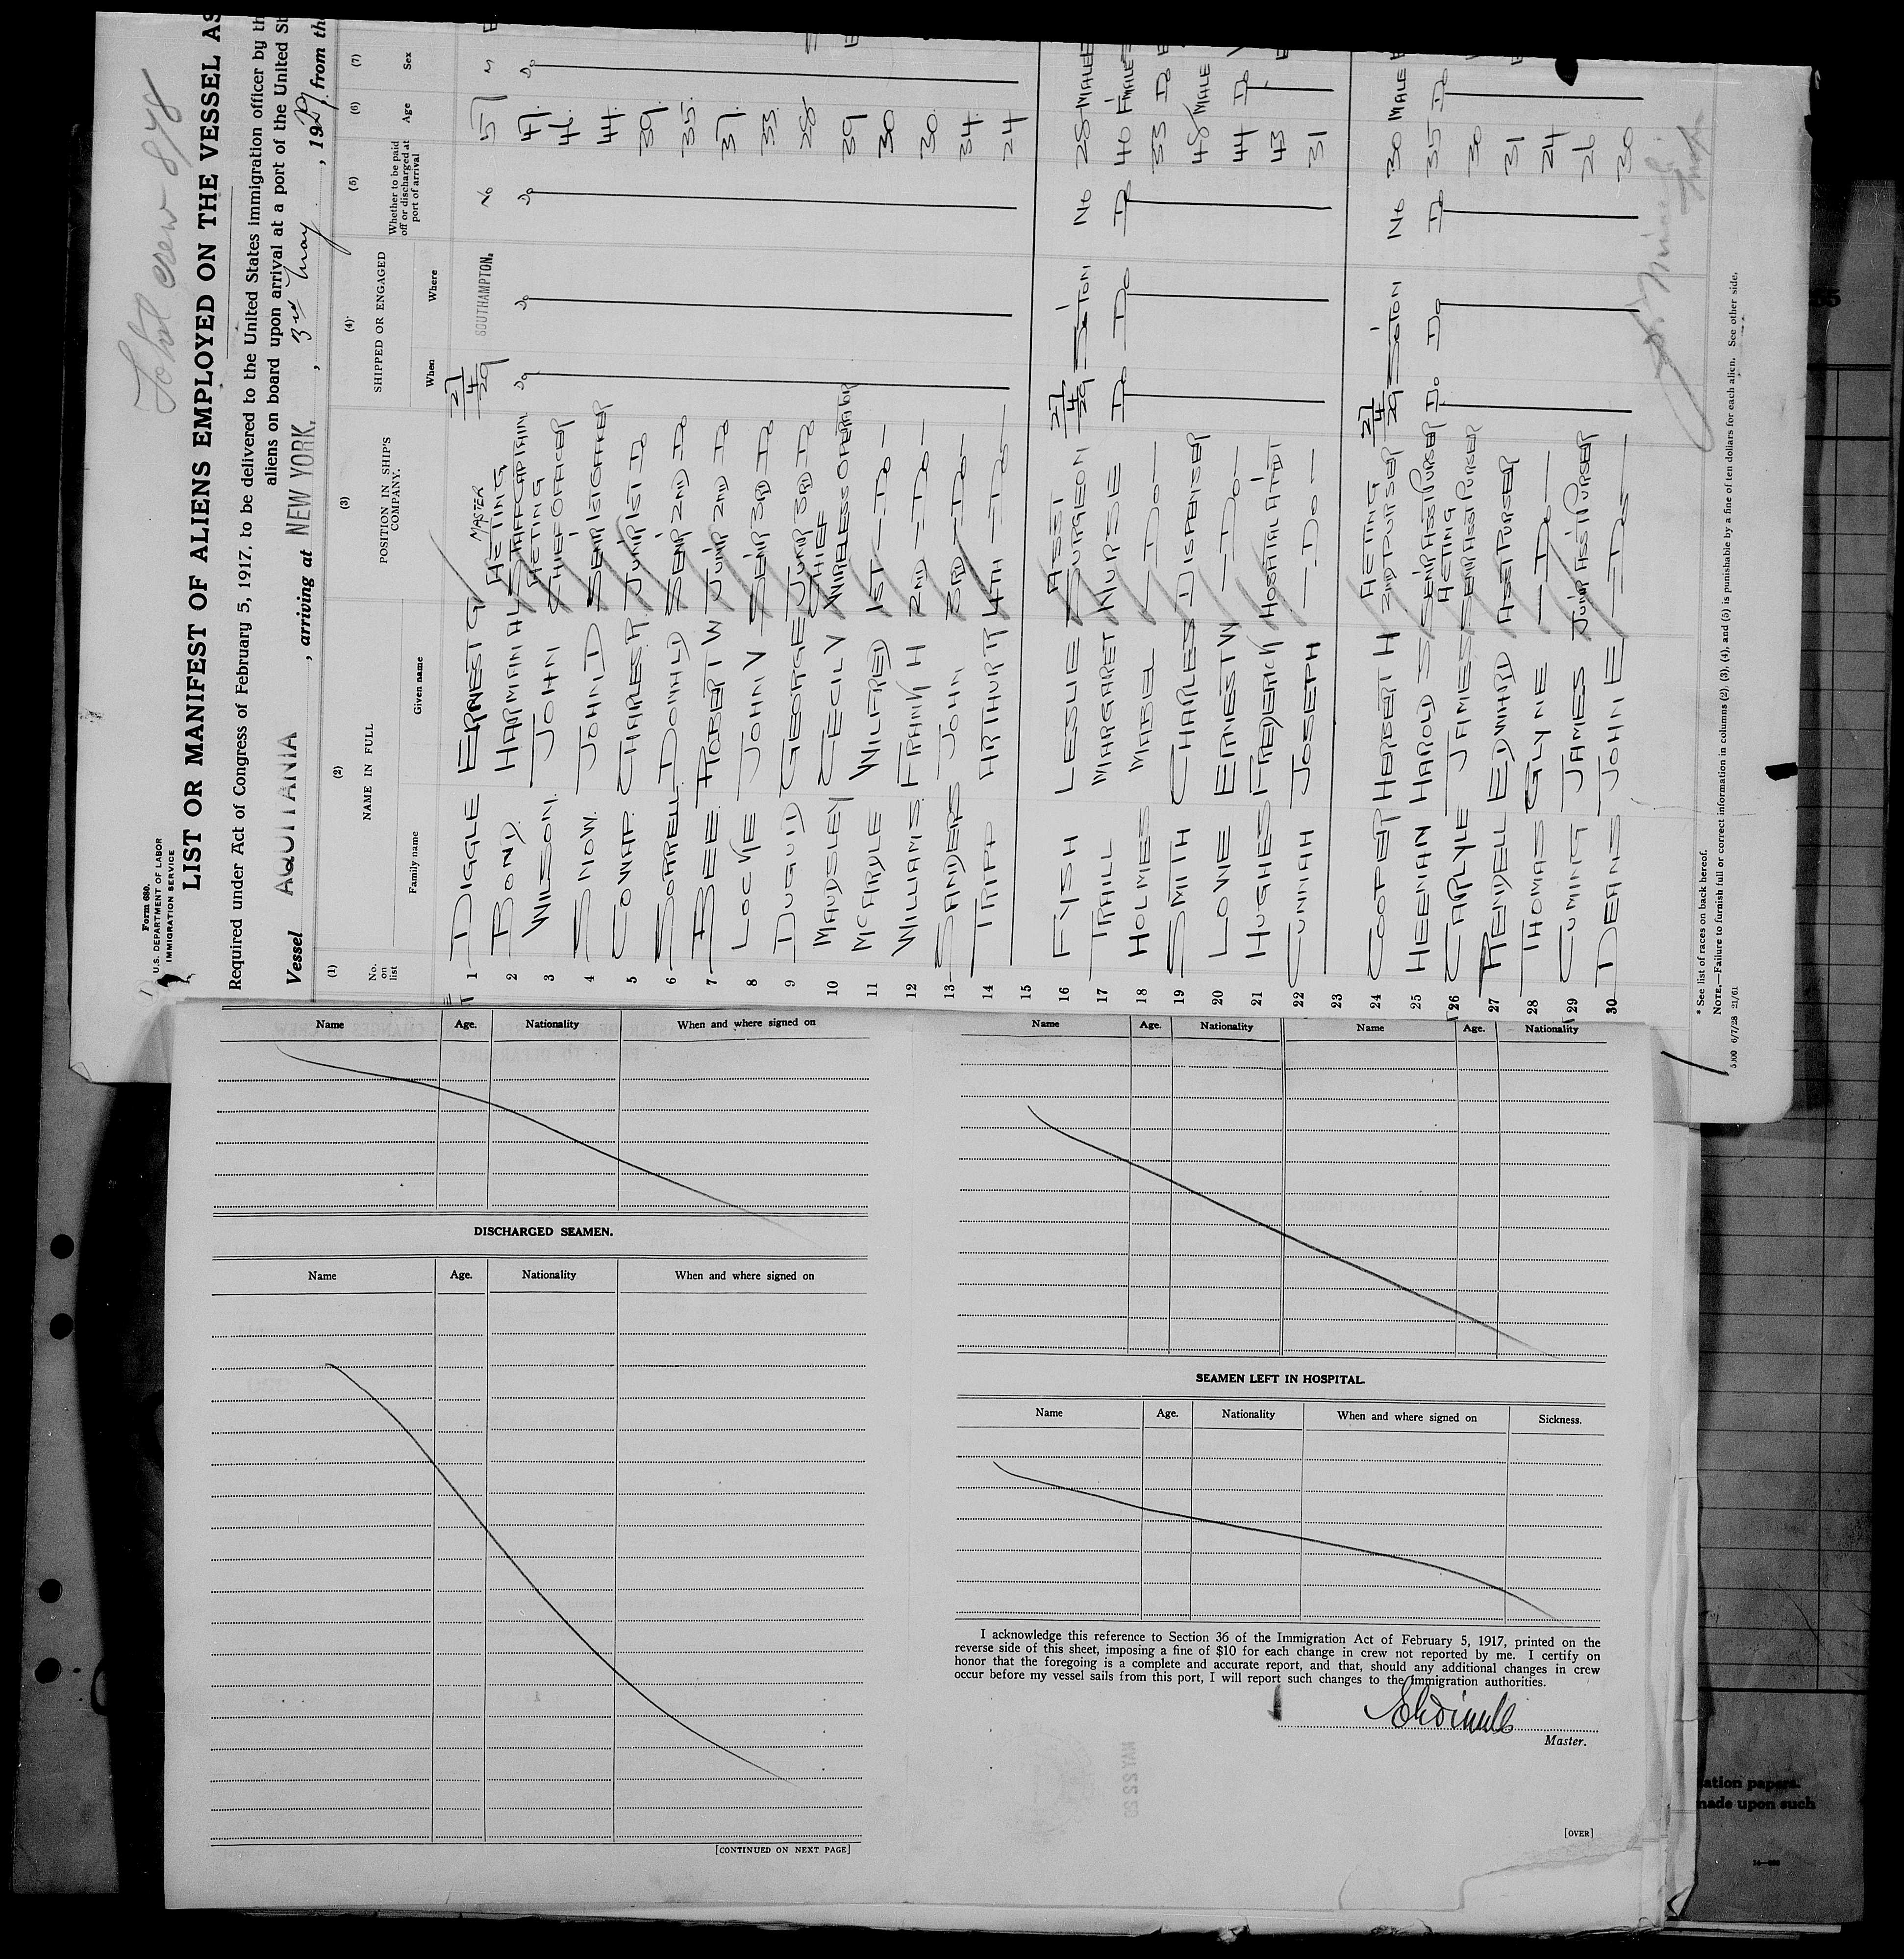 Total crew 878
Form 680.
U.S. DEPARTMENT OF LABOR
IMMIGRATION SERVICE
LIST OR MANIFEST OF ALIENS EMPLOYED ON THE VESSEL AS
Required under Act of Congress of February 5, 1917, to be delivered to the United States immigration officer by th
aliens on board upon arrival at a port of the United St
Vessel AQUITANIA , arriving at NEW YORK. , 3rd May , 1929, from th
(1) (2) (3) (4) (5) (6) (7)
No. on list NAME IN FULL POSITION IN SHIP'S COMPANY. SHIPPED OR ENGAGED Whether to be paid off or discharged at port of arrival Age Sex
Family name Given name When Where
1 DIGGLE ERNEST G MASTER 27/4/29 SOUTHAMPTON. No 57 M
2 BOND. HARMAN A L ACTING STAFF CAPTAIN Do Do Do 47 Do
3 WILSON. JOHN ACTING CHIEF OFFICER 46
4 SNOW. JOHN D SENR 1ST OFFICER 44
5 COVAR. CHARLES R. JUNR 1ST Do 39
6 SORRELL. DONALD SENR 2ND Do 35
7 BEE. ROBERT W JUNR 2ND Do 37
8 LOCKE JOHN V SENR 3RD Do 33
9 DUGUID GEORGE JUNR 3RD Do 28
10 MAUDSLEY CECIL V CHIEF WIRELESS OPERATOR 39
11 MCARDLE WILFRED 1ST — Do — 30
12 WILLIAMS. FRANK H 2ND — Do — 30
13 SANDERS JOHN 3RD — Do — 34
14 TRIPP ARTHUR R 4TH — Do — 24
15
16 FYSH LESLIE ASST SURGEON 27/4/29 S'OTON No 28 MALE
17 TRAILL MARGARET NURSE Do Do Do 40 F'MALE
18 HOLMES MABEL — Do — 33 Do
19 SMITH CHARLES DISPENSER 48 MALE
20 LOWE ERNEST W — Do — 44 Do
21 HUGHES FREDERICK HOSPITAL ATTDT 43
22 CUNNAH JOSEPH — Do — 31
23
24 COOPER HERBERT H ACTING 2ND PURSER 27/4/29 S'OTON No 30 MALE
25 HEENAN HAROLD S SENR ASST PURSER Do Do Do 35 Do
26 CARLYLE JAMES ACTING SENR ASST PURSER 30
27 RENDELL EDWARD ASST PURSER 31
28 THOMAS GLYNE — Do — 24
29 CUMING JAMES JUNR ASST PURSER 26
30 DEANS JOHN E — Do — 30
* See list of races on back hereof.
NOTE.—Failure to furnish full or correct information in columns (2), (3), (4), and (5) is punishable by a fine of ten dollars for each alien. See other side.
5,000 6/7/28 21/61
Name Age. Nationality When and where signed on
DISCHARGED SEAMEN.
Name Age. Nationality When and where signed on
[CONTINUED ON NEXT PAGE]
Name Age. Nationality Name Age. Nationality
SEAMEN LEFT IN HOSPITAL.
Name Age. Nationality When and where signed on Sickness.
I acknowledge this reference to Section 36 of the Immigration Act of February 5, 1917, printed on the
reverse side of this sheet, imposing a fine of $10 for each change in crew not reported by me. I certify on
honor that the foregoing is a complete and accurate report, and that, should any additional changes in crew
occur before my vessel sails from this port, I will report such changes to the Immigration authorities.
Master.
[OVER]
ation papers.
made upon such